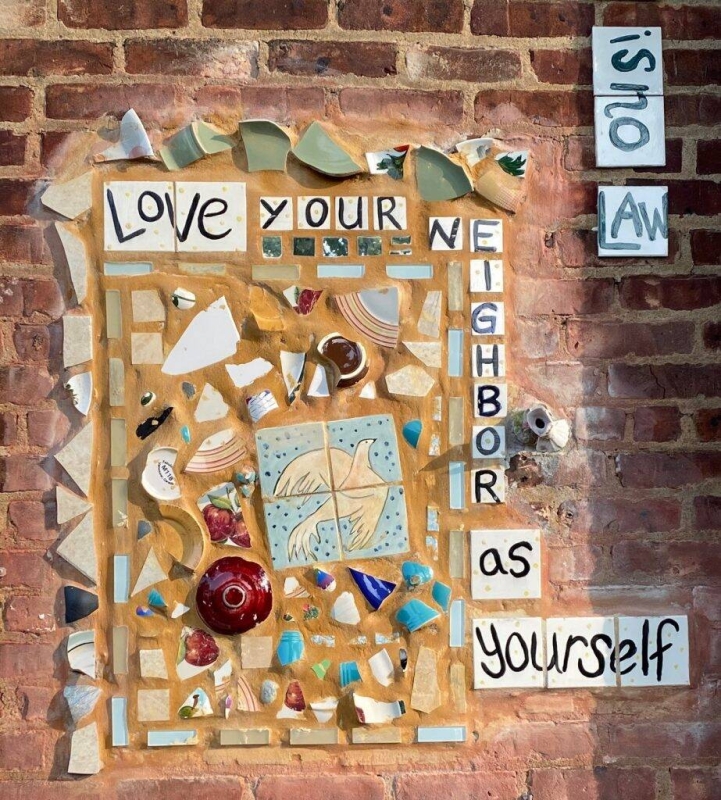 LOVE YOUR
NEIGHBOR
as
yourself
is no
LAW